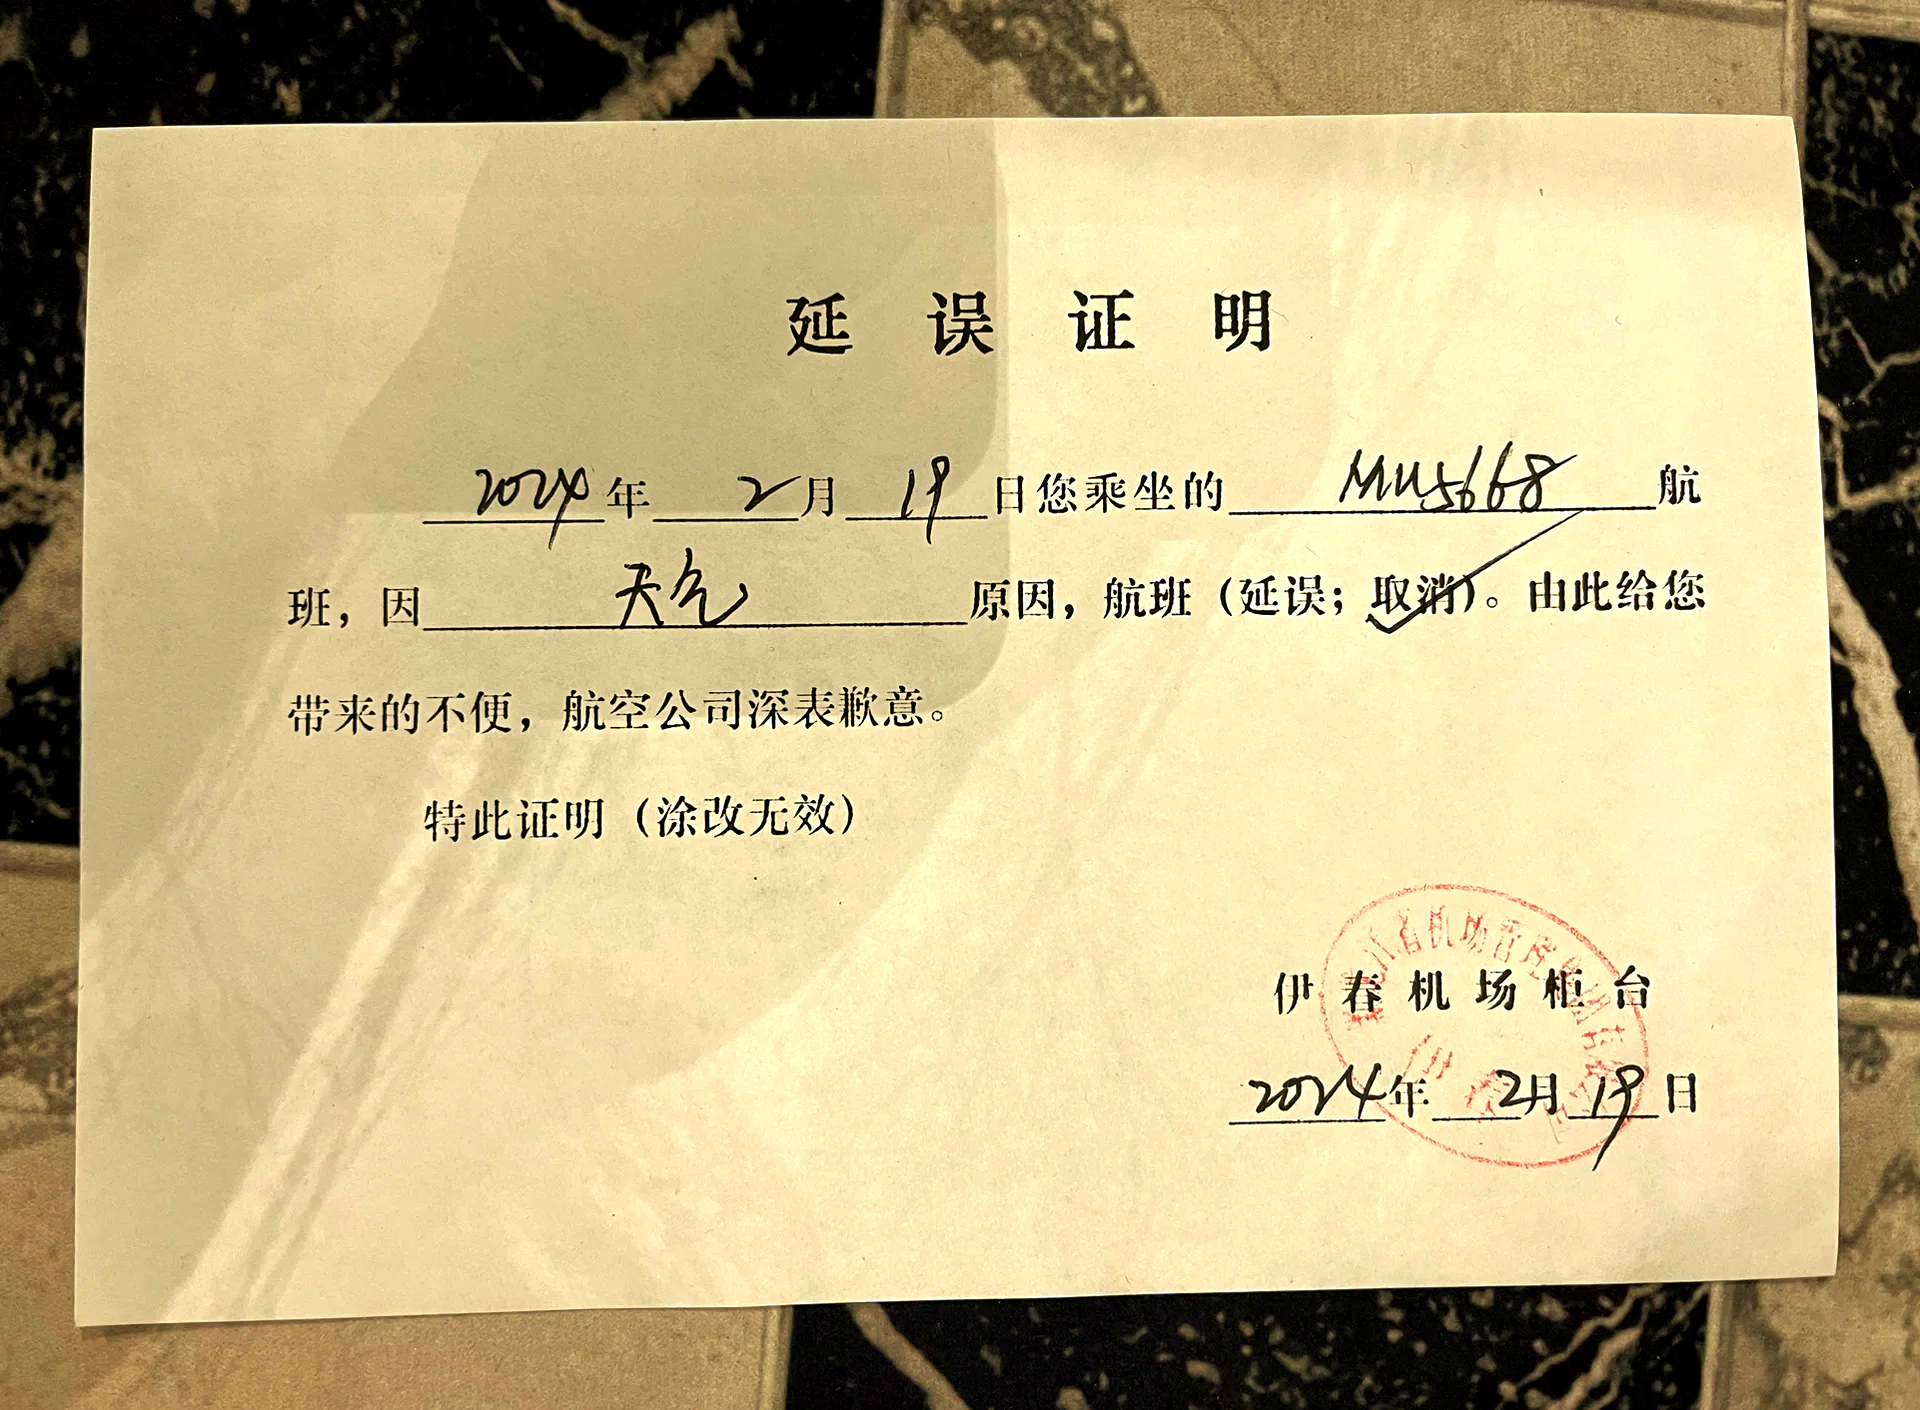 延误证明
2024年2月19日您乘坐的MU5668航
班，因天气原因，航班（延误；取消）。由此给您
带来的不便，航空公司深表歉意。
特此证明（涂改无效）
伊春机场柜台
2024年2月19日